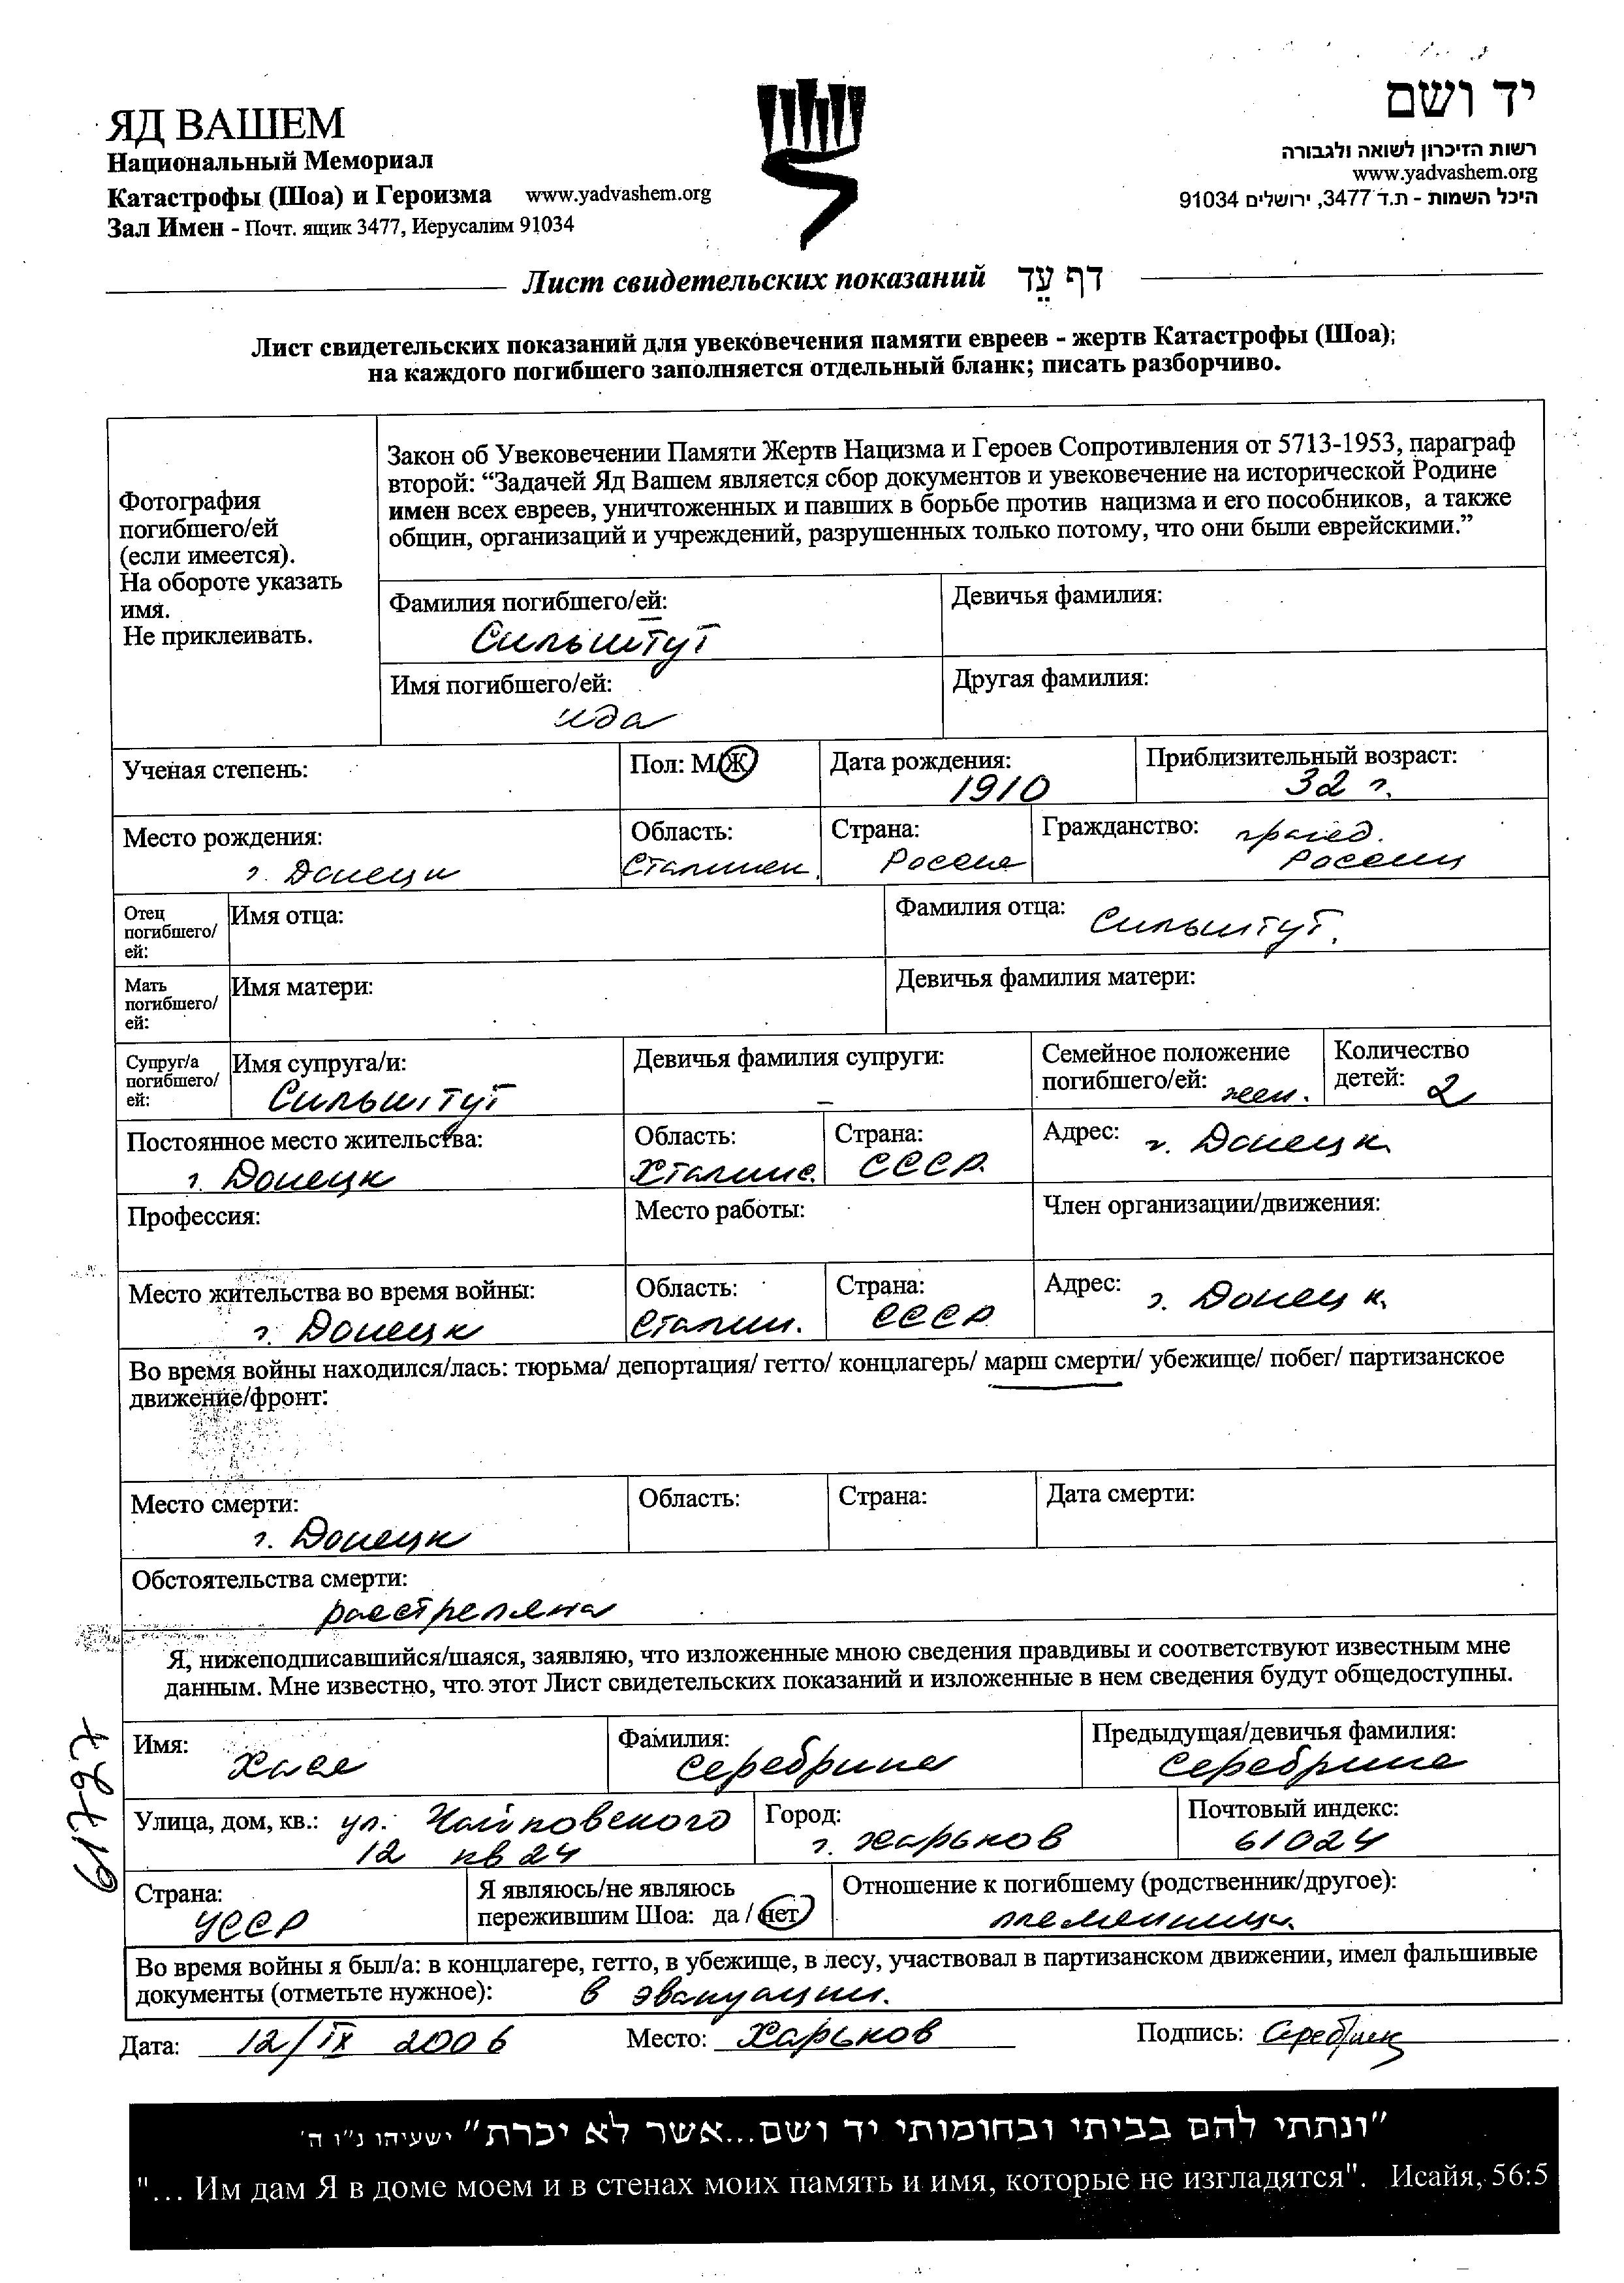 ЯД ВАШЕМ
Национальный Мемориал
Катастрофы (Шоа) и Героизма www.yadvashem.org
Зал Имен - Почт. ящик 3477, Иерусалим 91034
יד ושם
רשות הזיכרון לשואה ולגבורה
www.yadvashem.org
היכל השמות - ת.ד 3477, ירושלים 91034
Лист свидетельских показаний דף עֵד
Лист свидетельских показаний для увековечения памяти евреев - жертв Катастрофы (Шоа);
на каждого погибшего заполняется отдельный бланк; писать разборчиво.
Фотография
погибшего/ей
(если имеется).
На обороте указать
имя.
Не приклеивать.
Закон об Увековечении Памяти Жертв Нацизма и Героев Сопротивления от 5713-1953, параграф
второй: “Задачей Яд Вашем является сбор документов и увековечение на исторической Родине
имен всех евреев, уничтоженных и павших в борьбе против нацизма и его пособников, а также
общин, организаций и учреждений, разрушенных только потому, что они были еврейскими.”
Фамилия погибшего/ей:
Сильштут
Девичья фамилия:
Имя погибшего/ей:
Ида
Другая фамилия:
Ученая степень:
Пол: М/Ж
Дата рождения:
1910
Приблизительный возраст:
32 г.
Место рождения:
г. Донецк
Область:
Сталинск.
Страна:
Россия
Гражданство: гражд.
России
Отец
погибшего/
ей:
Имя отца:
Фамилия отца: Сильштут.
Мать
погибшего/
ей:
Имя матери:
Девичья фамилия матери:
Супруг/а
погибшего/
ей:
Имя супруга/и:
Сильштут
Девичья фамилия супруги:
–
Семейное положение
погибшего/ей: жен.
Количество
детей: 2
Постоянное место жительства:
г. Донецк
Область:
Сталинс.
Страна:
СССР.
Адрес: г. Донецк.
Профессия:
Место работы:
Член организации/движения:
Место жительства во время войны:
г. Донецк
Область:
Сталин.
Страна:
СССР
Адрес: г. Донецк.
Во время войны находился/лась: тюрьма/ депортация/ гетто/ концлагерь/ марш смерти/ убежище/ побег/ партизанское
движение/фронт:
Место смерти:
г. Донецк
Область:
Страна:
Дата смерти:
Обстоятельства смерти:
расстреляна
Я, нижеподписавшийся/шаяся, заявляю, что изложенные мною сведения правдивы и соответствуют известным мне
данным. Мне известно, что этот Лист свидетельских показаний и изложенные в нем сведения будут общедоступны.
Имя:
Хася
Фамилия:
Серебрина
Предыдущая/девичья фамилия:
Серебрина
Улица, дом, кв.: ул. Чайковского
12 кв 24
Город:
г. Харьков
Почтовый индекс:
61024
Страна:
УССР
Я являюсь/не являюсь
пережившим Шоа: да / нет
Отношение к погибшему (родственник/другое):
племянница.
Во время войны я был/а: в концлагере, гетто, в убежище, в лесу, участвовал в партизанском движении, имел фальшивые
документы (отметьте нужное): в эвакуации.
Дата: 12/IX 2006 Место: Харьков Подпись:
"ונתתי להם בביתי ובחומותי יד ושם...אשר לא יכרת" ישעיהו נ"ו ה'
"... Им дам Я в доме моем и в стенах моих память и имя, которые не изгладятся". Исайя, 56:5